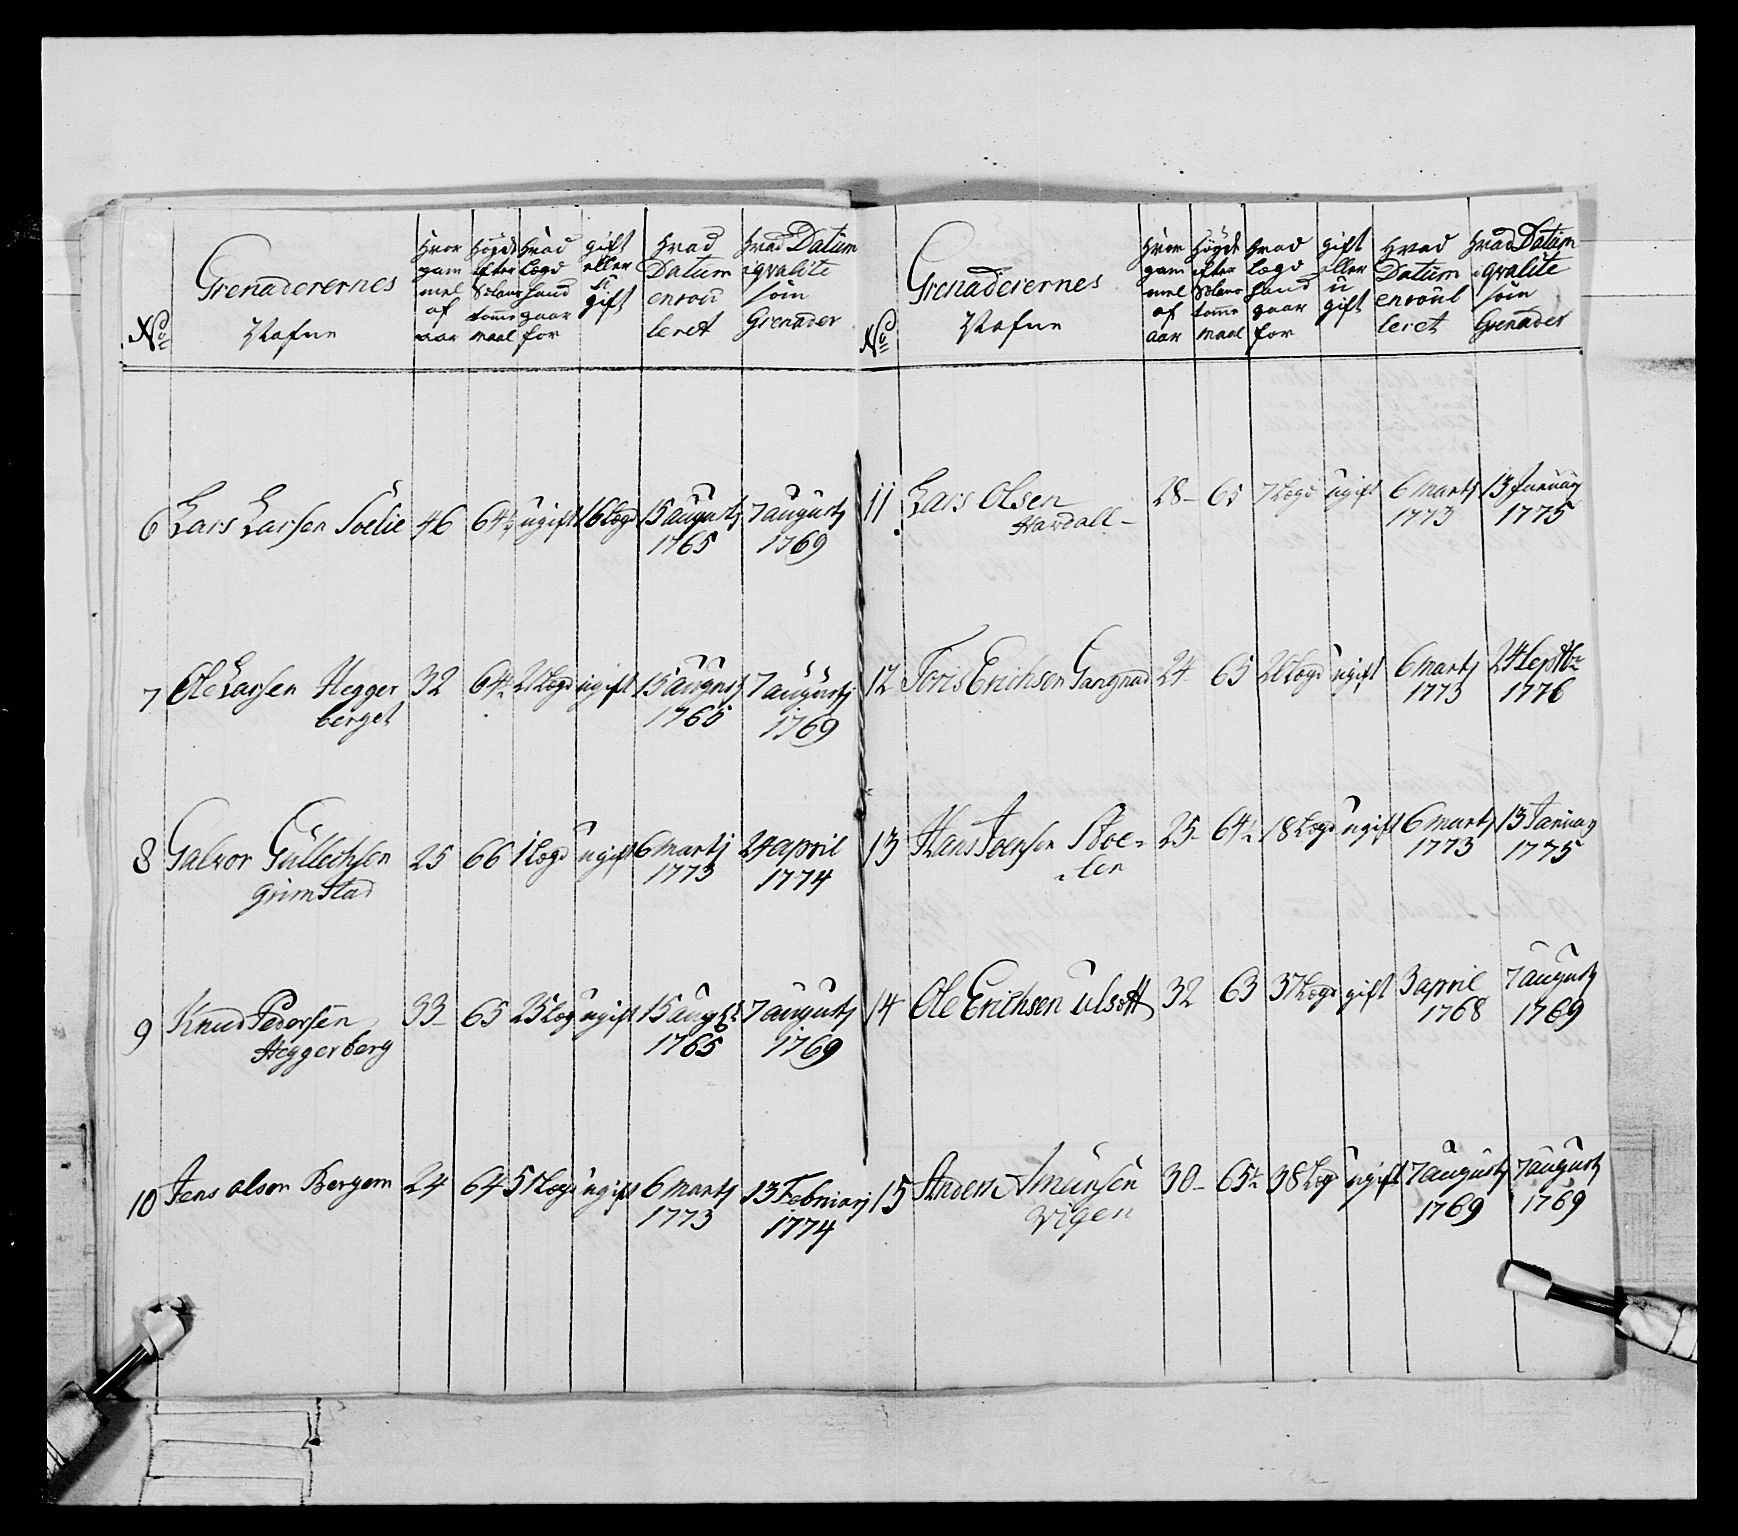 No
Grenaderernes
Nafne
hvor gam mel af aar
høyde efter Solans tomme maal
hvad Lægd hand gaar for
gift eller u gift
hvad Datum enrou leret
hvad Datum i qvalite som Grenader
6 Lars Larsen Soelie 46 64½ ugift 16 Lægd 15 augustj 1765 7 augustj 1769
7 Ole Larsen Hegger 32 64½ 21 Lægd ugift 15 augustj 1765 7 augustj 1769
berget
8 Galvor Gullechsen 25 66 1 Lægd ugift 6 martj 1773 24 april 1774
Grimstad
9 Knud Pedersen 33 65 25 Læg ugift 15 augst 1765 7 augustj 1769
Heggerberg
10 Jens olsen Bergem 24 64 51 Lægd ugift 6 martj 1773 13 Februarj 1774
No
Grenaderernes
Nafne
hvor gam mel af aar
høyde efter Solans tomme maal
hvad Lægd hand gaar for
gift eller u gift
hvad Datum enroul leret
hvad Datum i qvalite som Grenader
11 Lars Olsen 28 65 7 Lægd ugift 6 martj 1773 13 Januarj 1775
Hardall
12 Joris Erichsen Gangnad 24 65 26 Lægd ugift 6 martj 1773 24 Septbr 1776
13 Hans Joensen Stoe- 25 64½ 18 Lægd ugift 6 martj 1773 13 Januarj 1775
-len
14 Ole Erichsen Ulsøtt 32 63 37 Lægd gift 3 april 1768 7 augustj 1769
15 Anders Amunsen 30 65½ 38 Læg ugift 7 augustj 1769 7 augustj 1769
Vigen